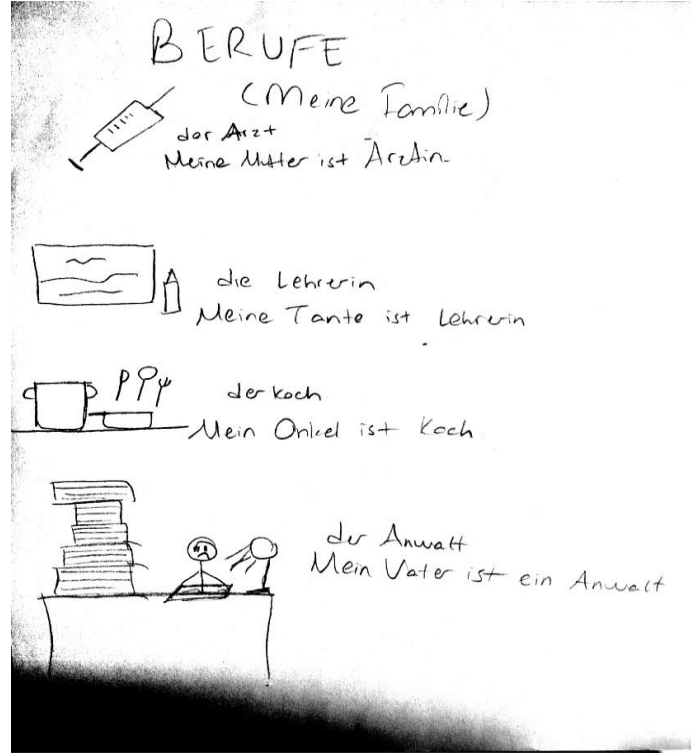 BERUFE
(Meine Familie)
der Arzt
Meine Mutter ist Ärztin
die Lehrerin
Meine Tante ist Lehrerin
der Koch
Mein Onkel ist Koch
der Anwalt
Mein Vater ist ein Anwalt